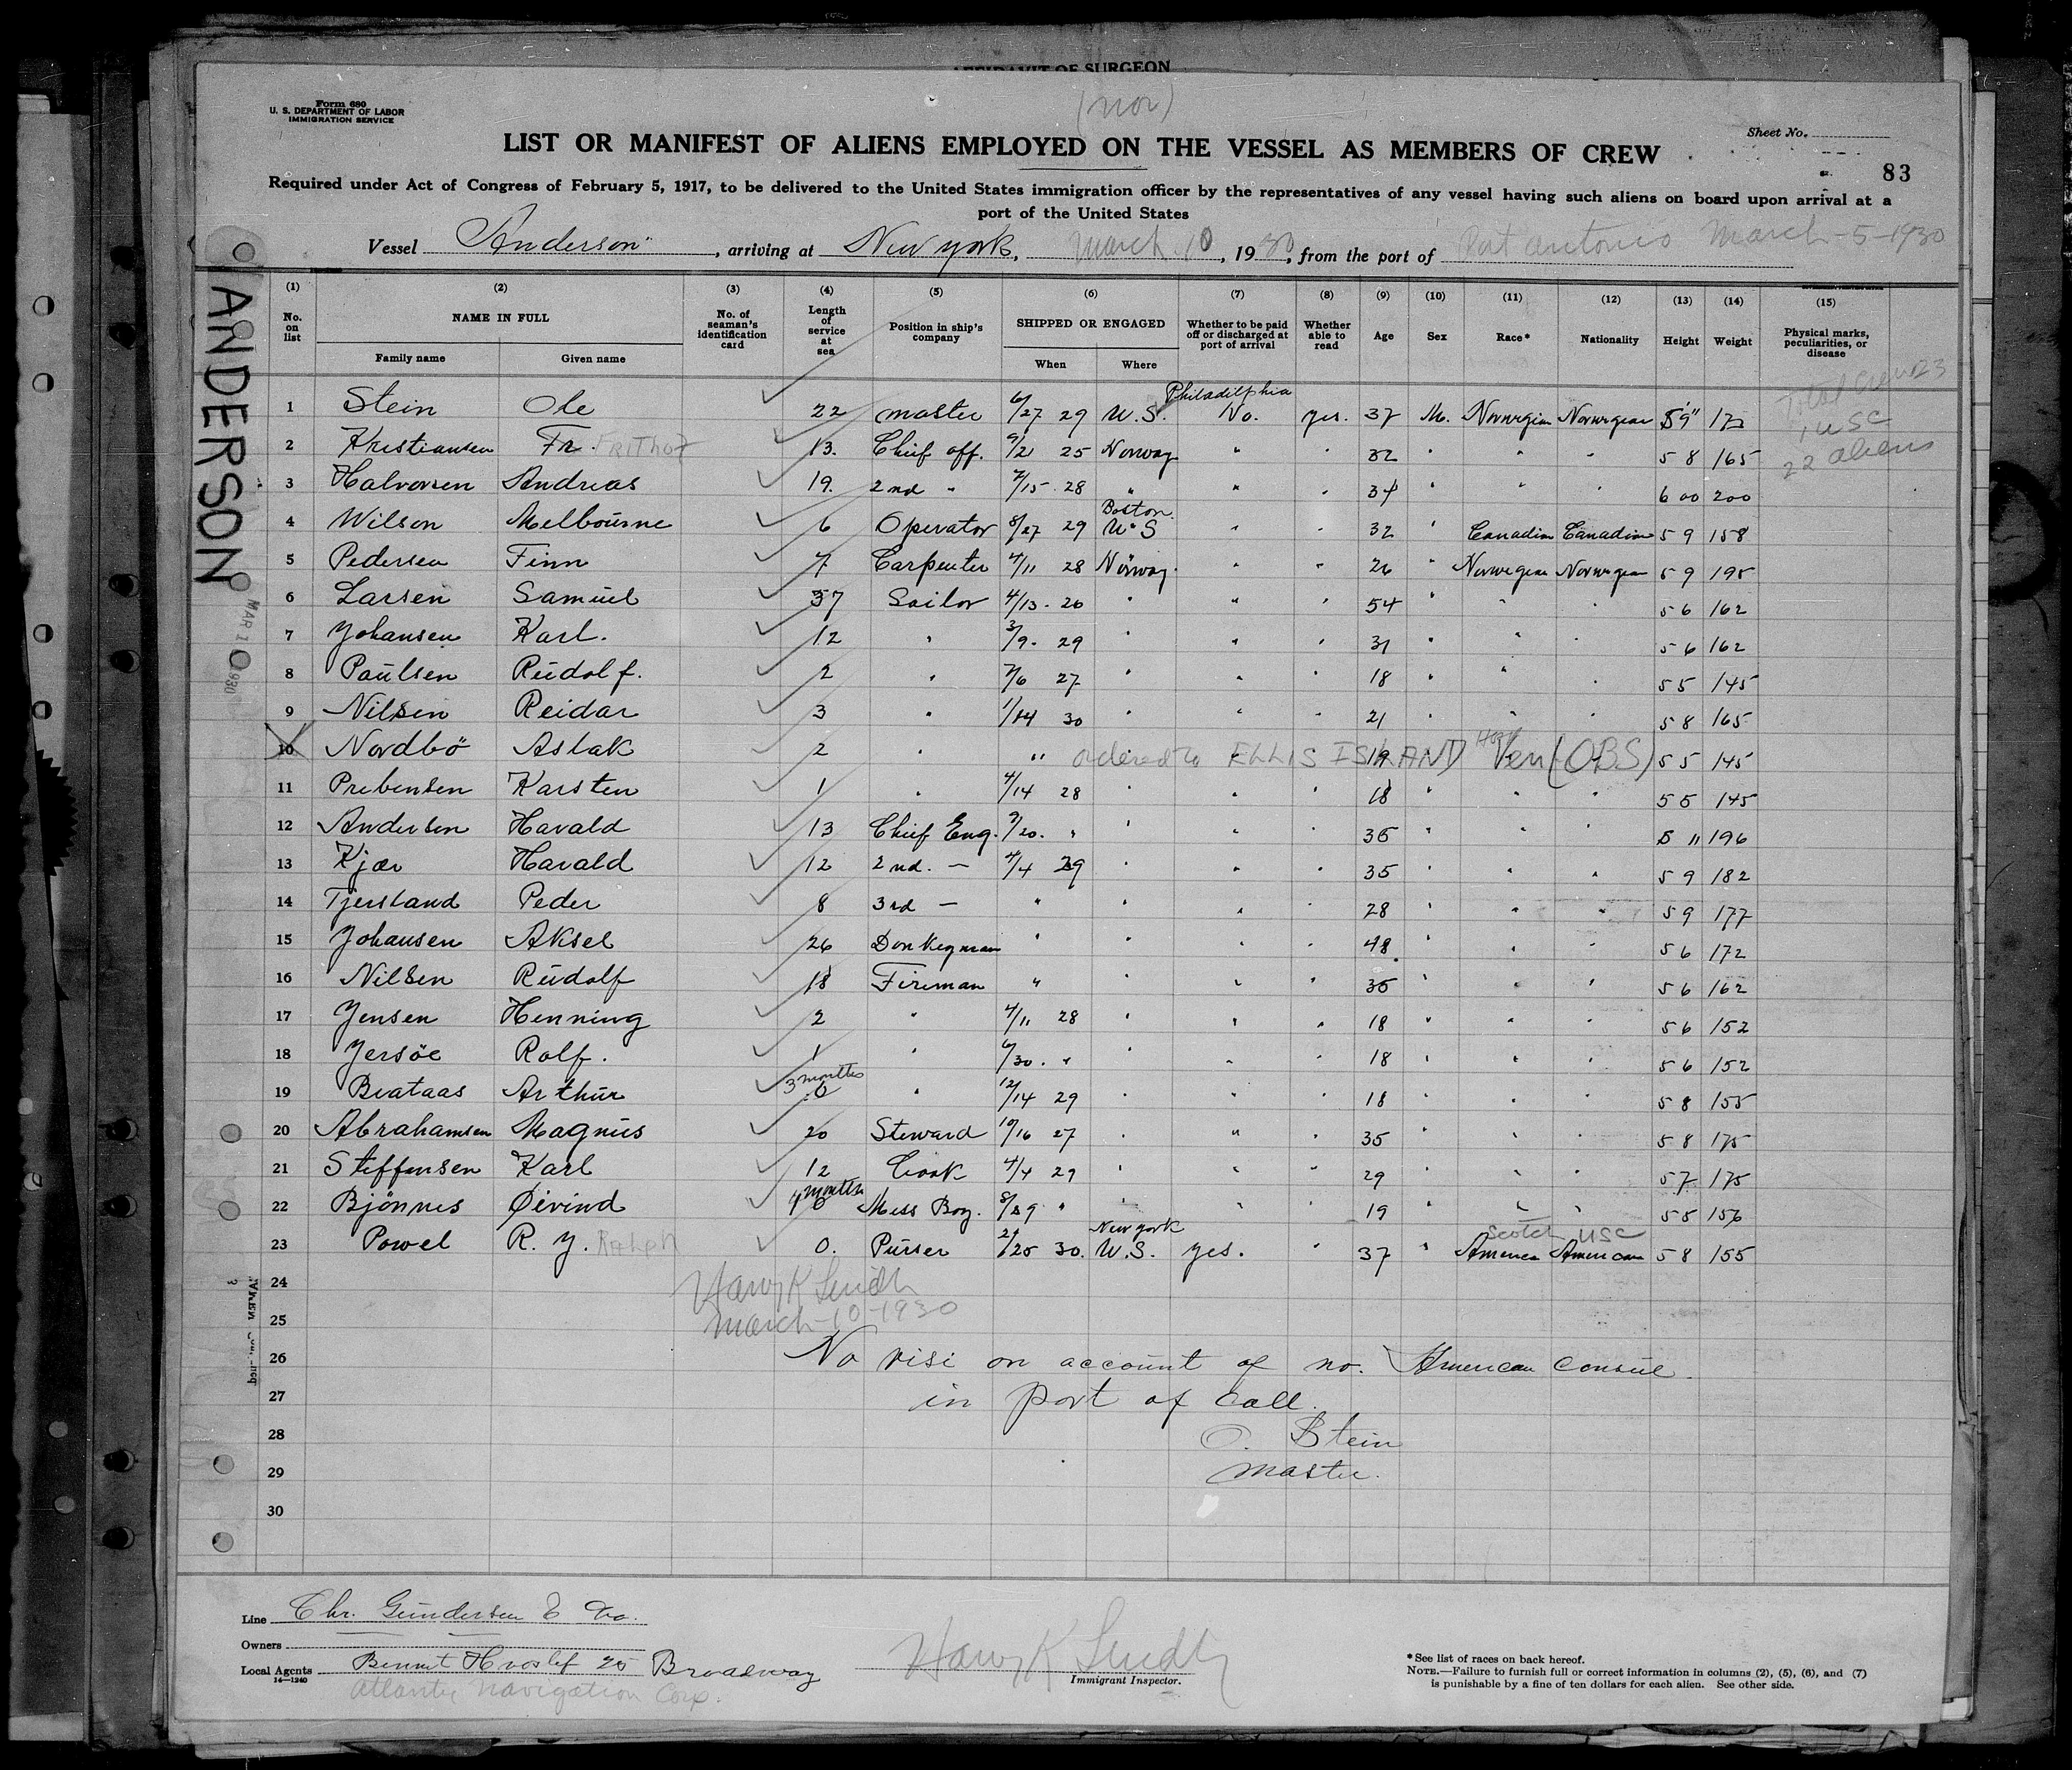 AFFIDAVIT OF SURGEON
Form 680
U. S. DEPARTMENT OF LABOR
IMMIGRATION SERVICE
(nor)
Sheet No.
LIST OR MANIFEST OF ALIENS EMPLOYED ON THE VESSEL AS MEMBERS OF CREW
83
Required under Act of Congress of February 5, 1917, to be delivered to the United States immigration officer by the representatives of any vessel having such aliens on board upon arrival at a
port of the United States
Vessel "Anderson", arriving at New York, March 10, 1930, from the port of Port Antonio March-5-1930
ANDERSON
MAR 10 1930
(1) (2) (3) (4) (5) (6) (7) (8) (9) (10) (11) (12) (13) (14) (15)
No. on list NAME IN FULL No. of seaman's identification card Length of service at sea Position in ship's company SHIPPED OR ENGAGED Whether to be paid off or discharged at port of arrival Whether able to read Age Sex Race* Nationality Height Weight Physical marks, peculiarities, or disease
Family name Given name When Where
Total crew 23
1 USC
22 aliens
Philadelphia
1 Stein Ole 22 master 6/27 29 U.S. No. yes. 37 M. Norwegian Norwegian 5'9" 173
2 Kristiansen Fr. FRITHOF 13. Chief off. 9/21 25 Norway " " 32 " " " 5 8 165
3 Halvorsen Andreas 19. 2nd " 7/15 28 " " " 34 " " " 6 00 200
Boston
4 Wilson Melbourne 6 Operator 8/27 29 U.S " " 32 " Canadian Canadian 5 9 158
5 Pedersen Finn 7 Carpenter 4/11 28 Norway. " " 26 " Norwegian Norwegian 5 9 195
6 Larsen Samuel 37 Sailor 4/13. 26 " " " 54 " " " 5 6 162
7 Johansen Karl. 12 " 3/9. 29 " " " 31 " " " 5 6 162
8 Paulsen Rudolf. 2 " 7/6 27 " " " 18 " " " 5 5 145
9 Nilsen Reidar 3 " 1/14 30 " " " 21 " " " 5 8 165
10 Nordbö Aslak 2 " " ordered to ELLIS ISLAND 19 Hosp Ven (OBS) 5 5 145
11 Prebensen Karsten 1 " 4/14 28 " " " 18 " " " 5 5 145
12 Andersen Harald 13 Chief Eng. 9/20. " " " " 36 " " " 5 11 196
13 Kjær Harald 12 2nd. — 4/4 29 " " " 35 " " " 5 9 182
14 Tjersland Peder 8 3rd — " " " " 28 " " " 5 9 177
15 Johansen Aksel 26 Donkeyman " " " " 48 " " " 5 6 172
16 Nilsen Rudolf 18 Fireman " " " " 36 " " " 5 6 162
17 Jensen Henning 2 " 4/11 28 " " " 18 " " " 5 6 152
18 Jersöe Rolf. 1 " 6/30. " " " " 18 " " " 5 6 152
3 months
19 Brataas Arthur 0 " 12/14 29 " " " 18 " " " 5 8 155
20 Abrahamsen Magnus 20 Steward 10/16 27 " " " 35 " " " 5 8 175
21 Steffensen Karl 12 Cook 4/4 29 " " " 29 " " " 5 7 175
months
22 Bjönnes Øivind 0 Mess Boy. " " " " 19 " " " 5 5 156
New York Scotch USC
23 Powel R. J. Ralph 0. Purser 2/25 30. U.S. yes. " 37 " America American 5 8 155
24
Harry K
25
March-10-1930
26 No visi on account of no. American Consul.
27 in port of call.
28 O. Stein
29 master.
30
Line Chr. Gundersen & Co.
Owners
Local Agents Bennet Hvoslef 25 Broadway
16—1240
Atlantic Navigation Corp.
Harry K
Immigrant Inspector.
* See list of races on back hereof.
NOTE.—Failure to furnish full or correct information in columns (2), (5), (6), and (7)
is punishable by a fine of ten dollars for each alien. See other side.